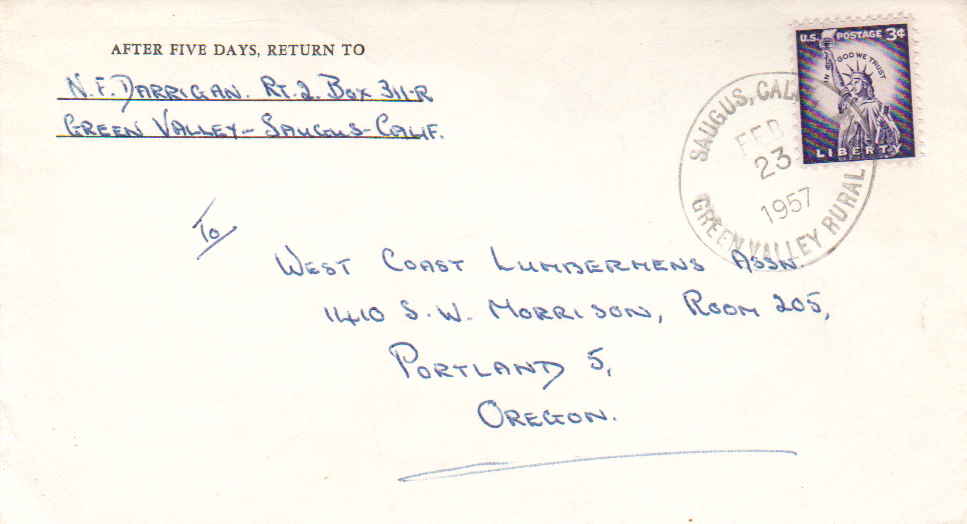 AFTER FIVE DAYS, RETURN TO
N. F. DARRIGAN. RT. 2. BOX 311-R
GREEN VALLEY - SAUGUS - CALIF.
U.S. POSTAGE 3¢
IN GOD WE TRUST
LIBERTY
SAUGUS, CAL
FEB
23
1957
GREEN VALLEY RURAL
To
WEST COAST LUMBERMENS ASSN.
1410 S.W. MORRISON, ROOM 205,
PORTLAND 5,
OREGON.